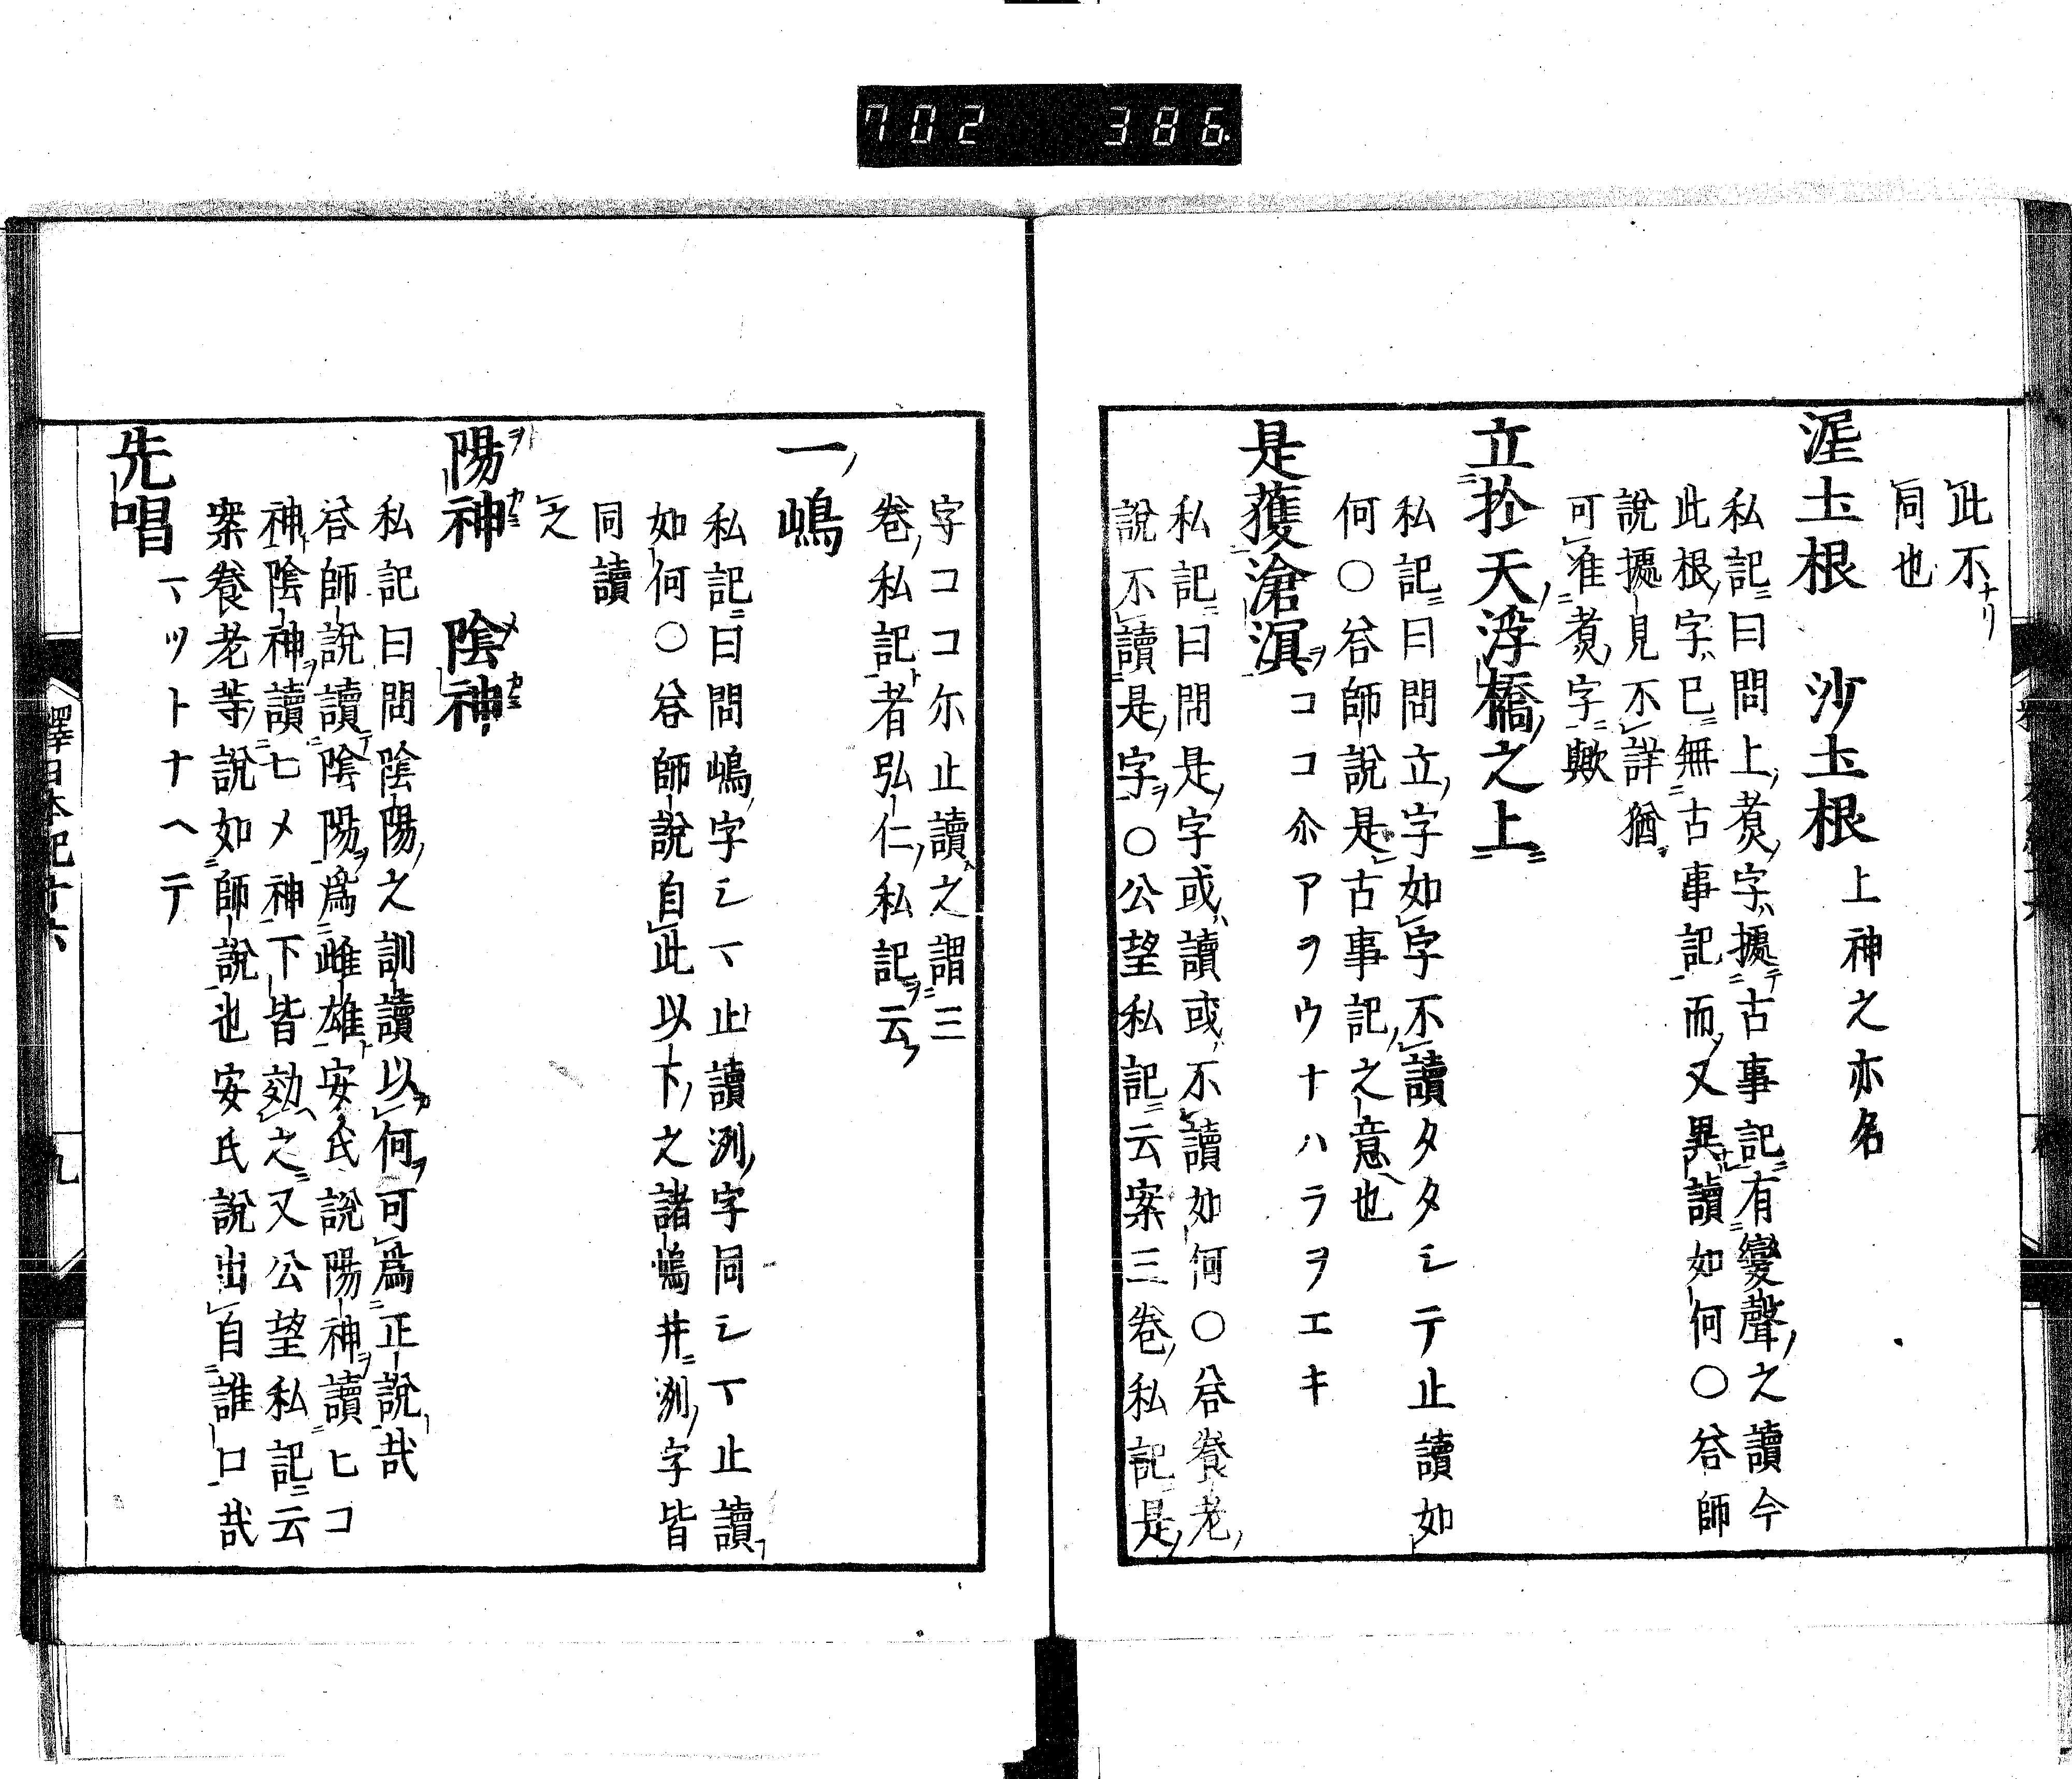 702 386
此不ナリ
同也
渥土根 沙土根 上神之亦名
私記曰問上煑字據古事記有變聲之讀今
此根字已無古事記而又異讀如何〇答師
說據見不詳猶
可准煑字歟
立於天浮橋之上
私記曰問立字如字不讀タタシテ止讀如
何〇答師說是古事記之意也
是獲滄溟 ココ尒アヲウナハラヲエキ
私記曰問是字或讀或不讀如何〇答養老
說不讀是字〇公望私記云案三卷私記是
字ココ尓止讀之謂三
卷私記者弘仁私記云
一嶋
私記曰問嶋字シマ止讀洲字同シマ止讀
如何〇答師說自此以下之諸嶋幷洲字皆
同讀
之
陽神 陰神
私記曰問陰陽之訓讀以何可爲正說哉
答師說讀陰陽爲雌雄安氏說陽神讀ヒコ
神陰神讀ヒメ神下皆效之又公望私記云
案養老等說如師說也安氏說出自誰口哉
先唱 マツトナヘテ
釋日本紀十六
九